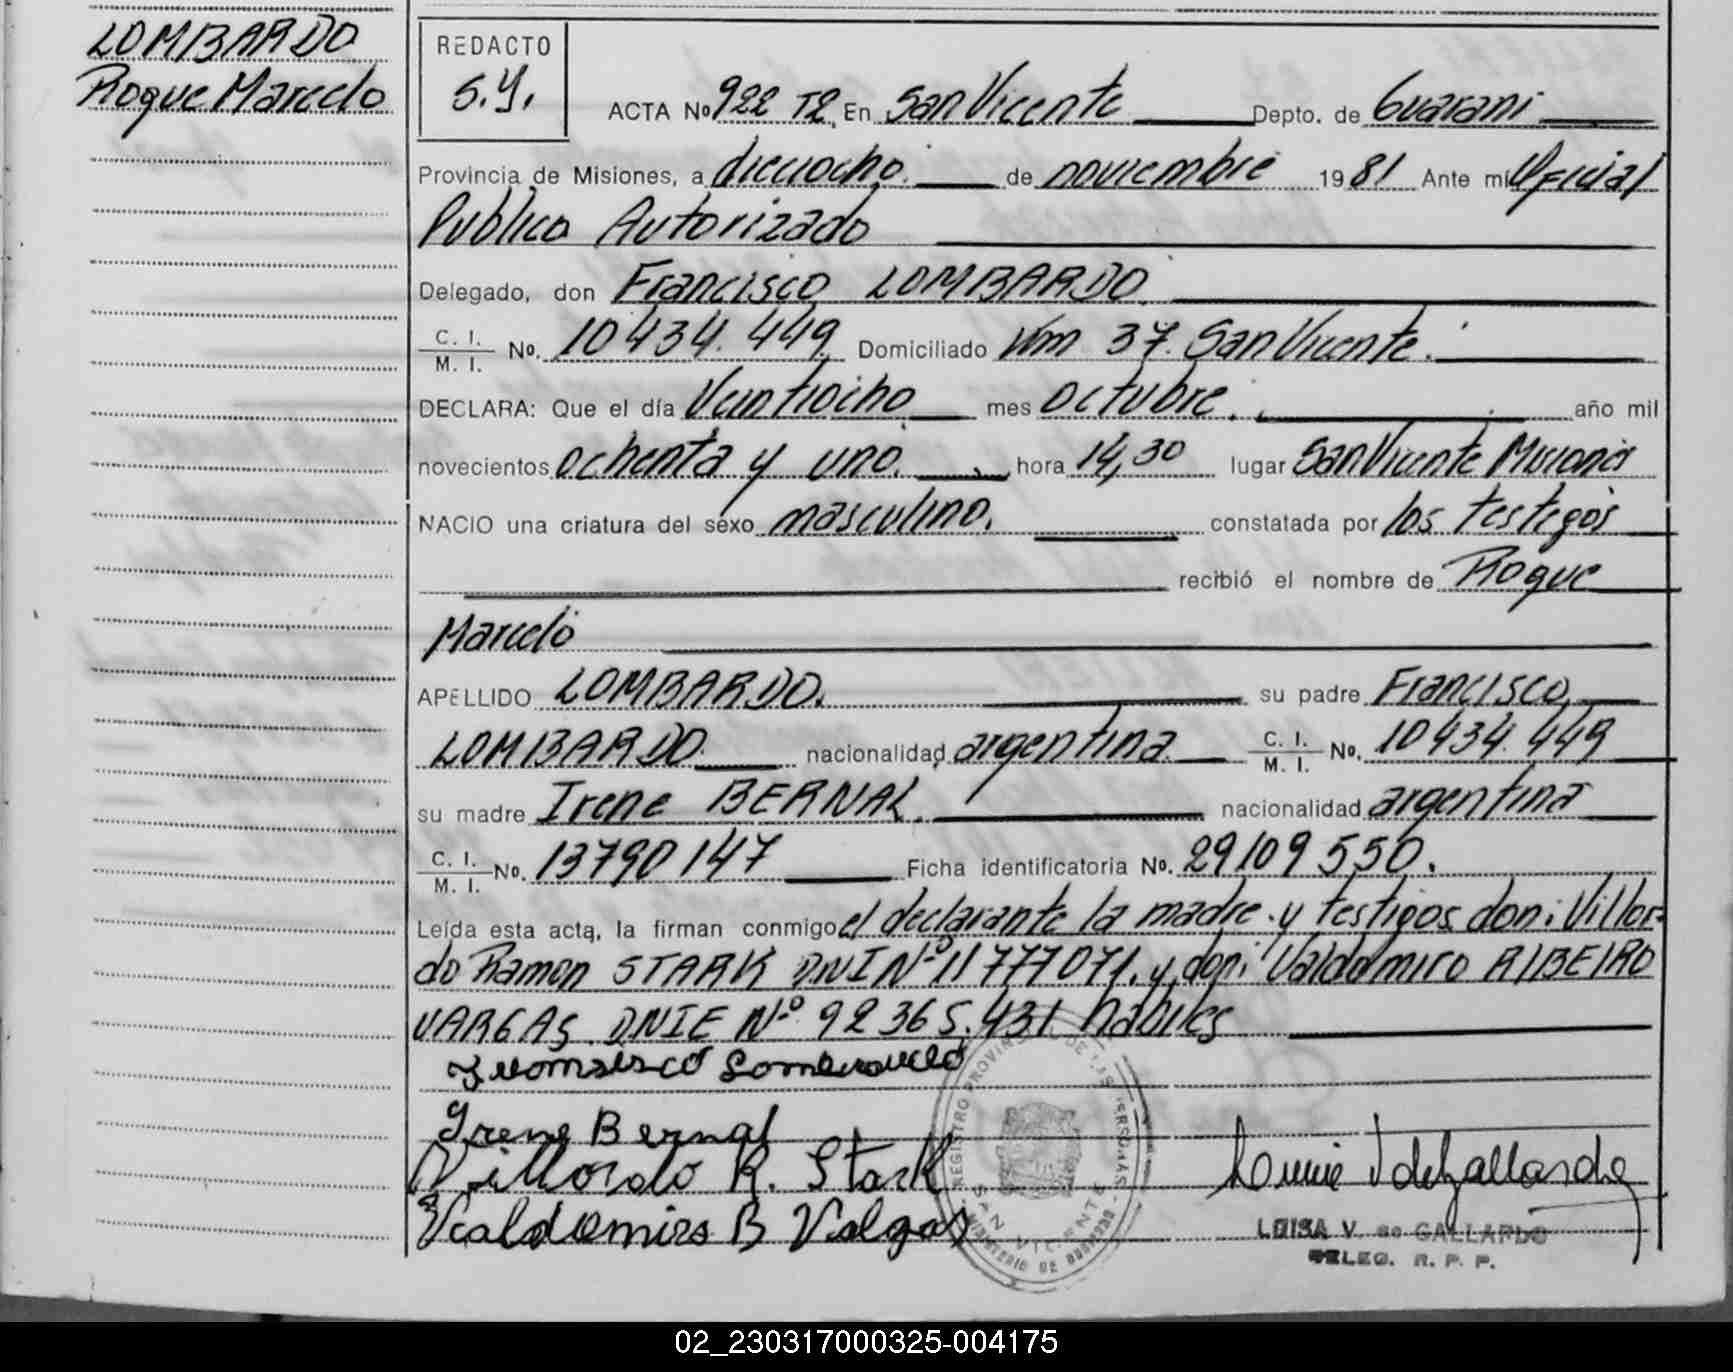 LOMBARDO
Roque Marcelo
REDACTO
S.Y.
ACTA Nº 922 T2. En San Vicente Depto. de Guarani
Provincia de Misiones, a dieciocho. de noviembre 1981 Ante mí Oficial
Publico Autorizado
Delegado, don Francisco LOMBARDO.
C. I. / M. I. Nº. 10 434.449. Domiciliado Km 37. San Vicente.
DECLARA: Que el día Veintiocho mes octubre. año mil
novecientos ochenta y uno. hora 14,30 lugar San Vicente Misiones
NACIO una criatura del sexo masculino. constatada por los testigos
recibió el nombre de Roque
Marcelo
APELLIDO LOMBARDO. su padre Francisco
LOMBARDO. nacionalidad argentina. C. I. / M. I. Nº. 10434.449
su madre Irene BERNAL. nacionalidad argentina
C. I. / M. I. Nº. 13790147 Ficha identificatoria Nº. 29109550.
Leída esta acta, la firman conmigo el declarante la madre. y testigos don: Villor-
do Ramon STARK DNI Nº 11777071. y don: Valdomiro RIBEIRO
VARGAS. DNIE Nº 92365.431 habiles
Irene Bernal
Villordo R. Stark
Valdomiro B Valgas
REGISTRO PROVINCIAL DE LAS PERSONAS
SAN VICENTE
MINISTERIO DE GOBIERNO
LUISA V. de GALLARDO
DELEG. R. P. P.
02_230317000325-004175